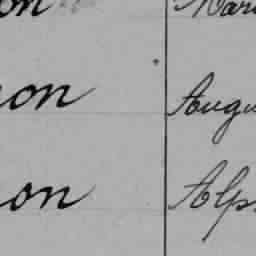 on Mar
on Augu
on Alp